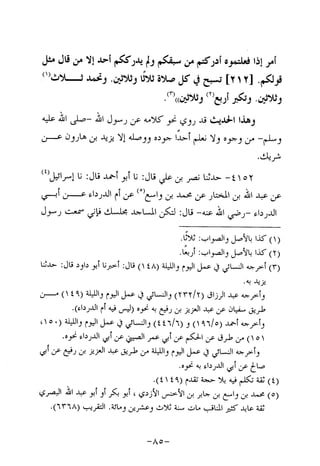 أمر إذا فعلتموه أدركتم من سبقكم ولم يدركم أحد إلا من قال مثل
قولكم. [٢١٢] تسبح في كل صلاة ثلاثًا وثلاثين. وتحمد ثـــلاث(١)
وثلاثين. وتكبر أربع(٢) وثلاثين»(٣).
وهذا الحديث قد روي نحو كلامه عن رسول الله -صلى الله عليه
وسلم- من وجوه ولا نعلم أحدًا جوده ووصله إلا يزيد بن هارون عـــن
شريك.
٤١٥٢- حدثنا نصر بن علي قال: نا أبو أحمد قال: نا إسرائيل(٤)
عن عبد الله بن المختار عن محمد بن واسع(٥) عن أم الدرداء عـــن أبـــي
الدرداء -رضي الله عنه- قال: لتكن المساجد مجلسك فإني سمعت رسول
(١) كذا بالأصل والصواب: ثلاثًا.
(٢) كذا بالأصل والصواب: أربعًا.
(٣) أخرجه النسائي في عمل اليوم والليلة (١٤٨) قال: أخبرنا أبو داود قال: حدثنا
يزيد به.
وأخرجه عبد الرزاق (٢٣٢/٢) والنسائي في عمل اليوم والليلة (١٤٩) مـــن
طريق سفيان عن عبد العزيز بن رفيع به نحوه (ليس فيه أم الدرداء).
وأخرجه أحمد (١٩٦/٥) و (٤٤٦/٦) والنسائي في عمل اليوم والليلة (١٥٠،
١٥١) من طرق عن الحكم عن أبي عمر الصيني عن أبي الدرداء نحوه.
وأخرجه النسائي في عمل اليوم والليلة من طريق عبد العزيز بن رفيع عن أبي
صالح عن أبي الدرداء به نحوه.
(٤) ثقة تكلم فيه بلا حجة تقدم (٤١٤٩).
(٥) محمد بن واسع بن جابر بن الأخنس الأزدي، أبو بكر أو أبو عبد الله البصري
ثقة عابد كثير المناقب مات سنة ثلاث وعشرين ومائة. التقريب (٦٣٦٨).
-٨٥-